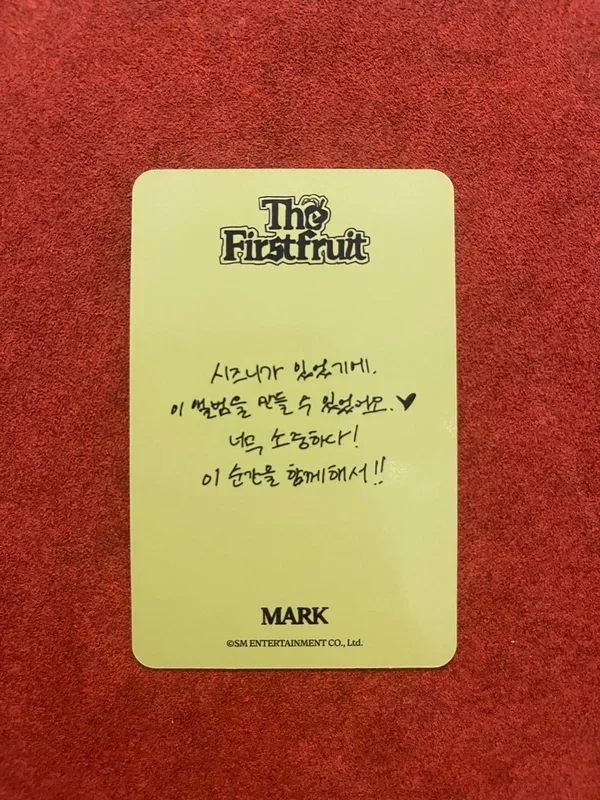 The
Firstfruit
시즈니가 있었기에.
이 앨범을 만들 수 있었어요.♥
너무 소중하다!
이 순간을 함께해서!!
MARK
©SM ENTERTAINMENT CO., Ltd.